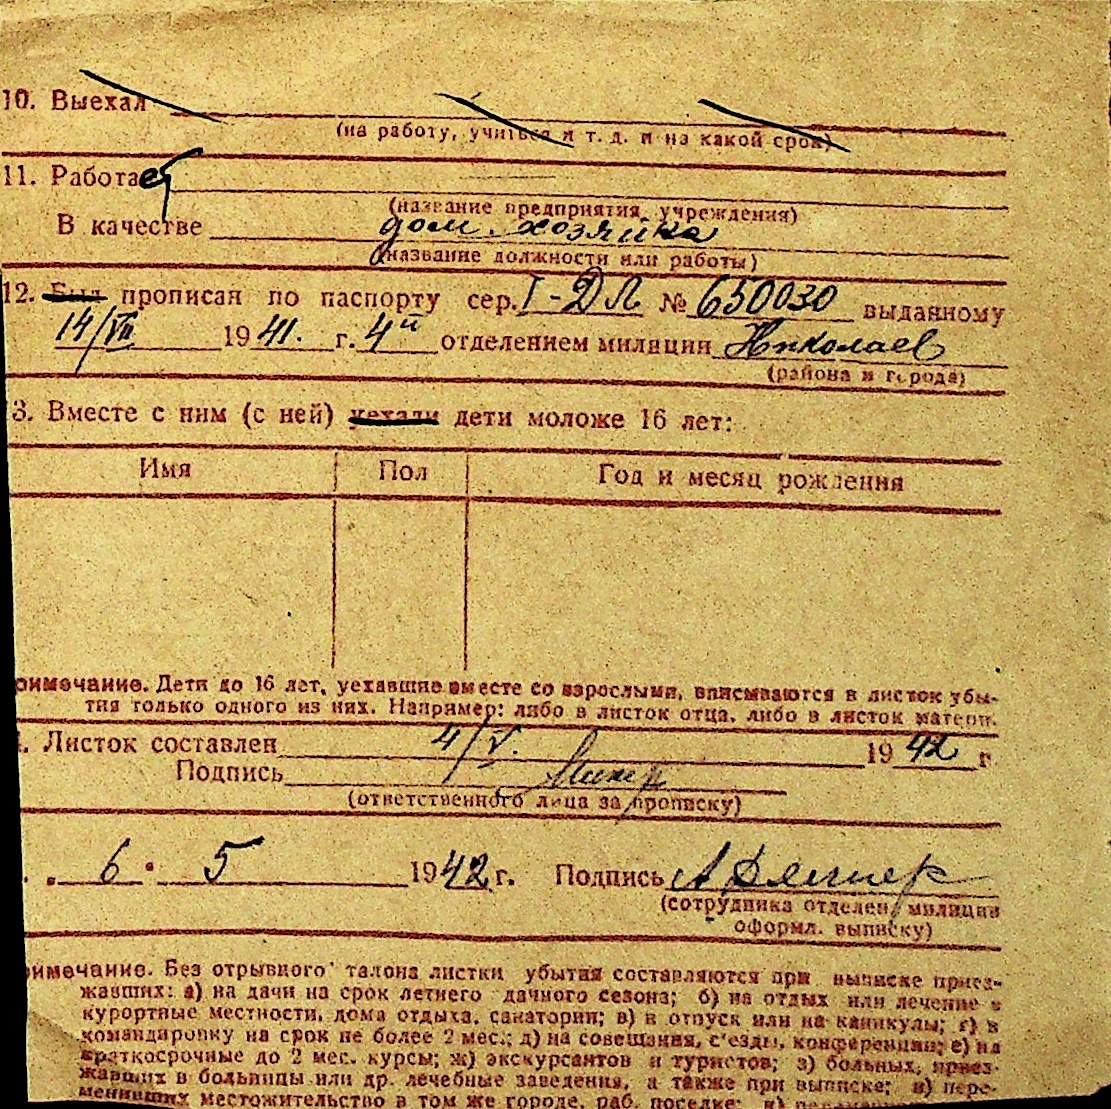 10. Выехал
(на работу, учиться и т. д. и на какой срок)
11. Работает
(название предприятия, учреждения)
В качестве дом. хозяйка
(название должности или работы)
12. Был прописан по паспорту сер. I-ДЛ № 650030 выданному
14/VII 1941. г. 4й отделением милиции Николаев
(района и города)
3. Вместе с ним (с ней) уехали дети моложе 16 лет:
Имя Пол Год и месяц рождения
римечание. Дети до 16 лет, уехавшие вместе со взрослыми, вписываются в листок убы-
тия только одного из них. Например: либо в листок отца, либо в листок матери.
. Листок составлен 4/V. 1942 г
Подпись
(ответственного лица за прописку)
. „ 6 • 5 1942 г. Подпись
(сотрудника отделен. милиции
оформл. выписку)
имечание. Без отрывного талона листки убытия составляются при выписке приез-
жавших: а) на дачи на срок летнего дачного сезона; б) на отдых или лечение в
курортные местности, дома отдыха, санатории; в) в отпуск или на каникулы; г) в
командировку на срок не более 2 мес.; д) на совещания, с'езды, конференции; е) на
краткосрочные до 2 мес. курсы; ж) экскурсантов и туристов; з) больных, приез-
жавших в больницы или др. лечебные заведения, а также при выписке; и) пере-
менивших местожительство в том же городе, раб. поселке;